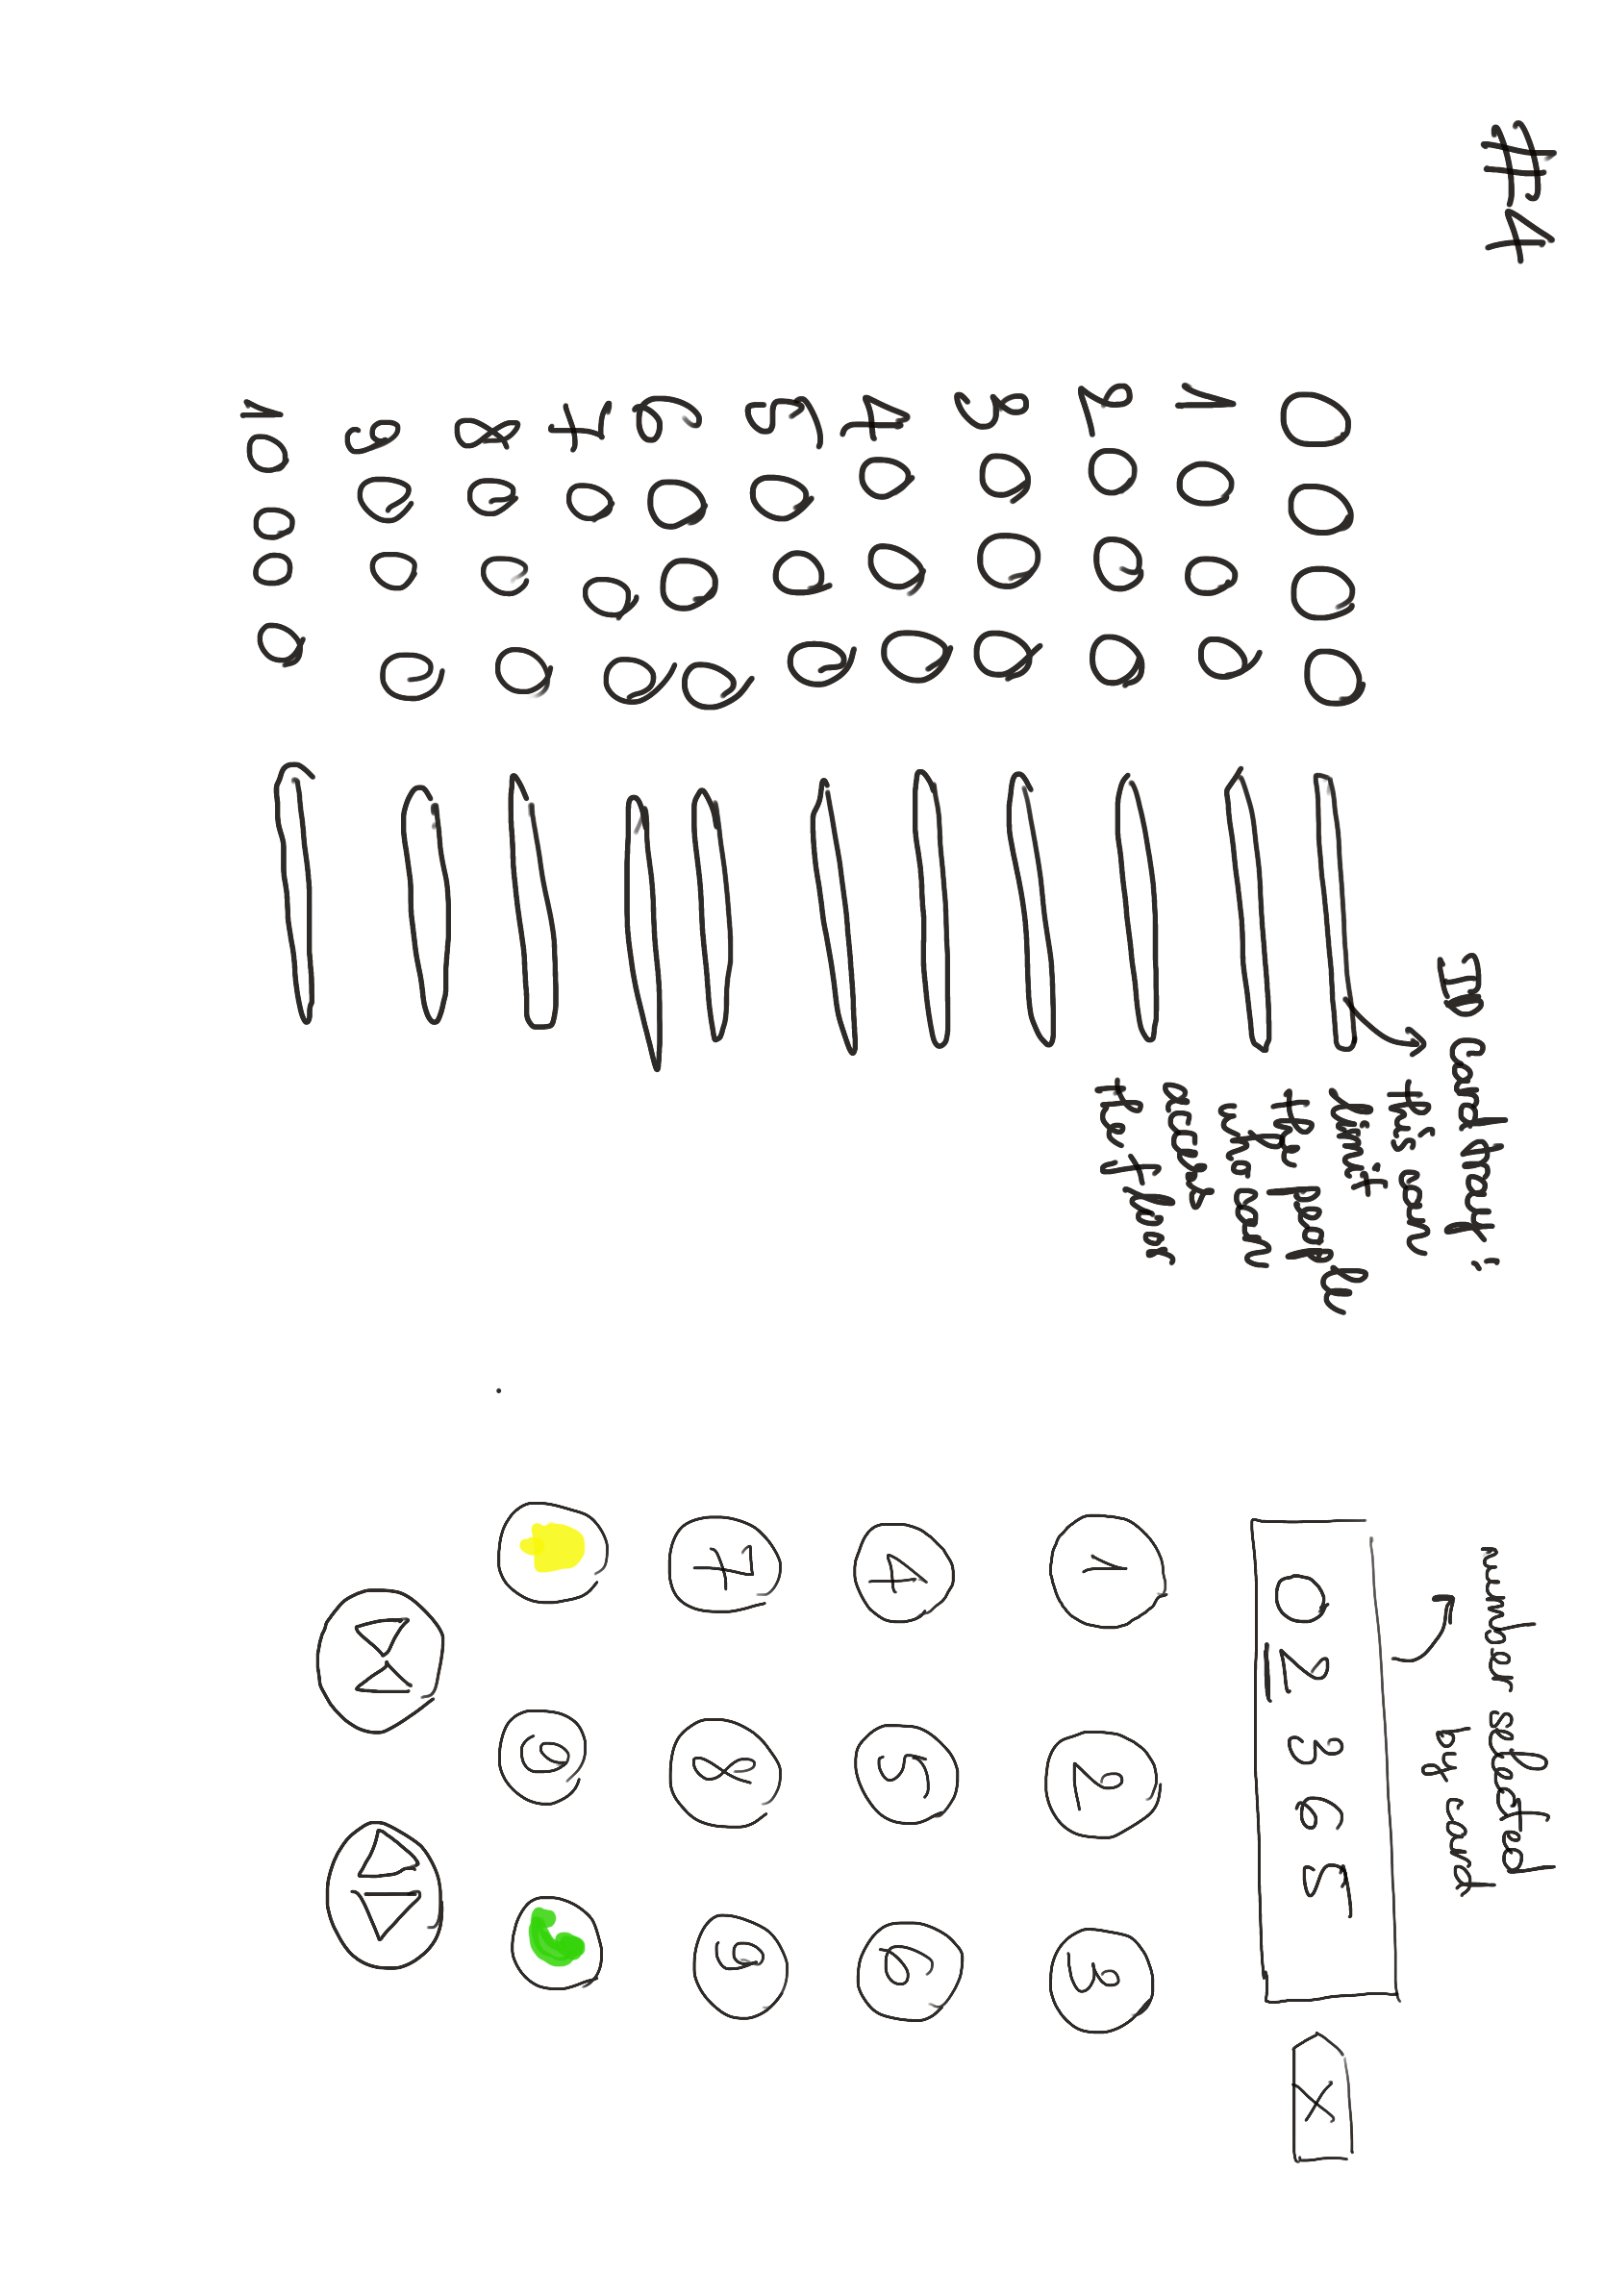 #4
0000
1000
2000
3000
4000
5000
6000
7000
8000
9000
10000
ID card tray:
this can
limit
the people
who can
access
the floor
number selected
by card
02365
X
1 2 3
4 5 6
7 8 9
0